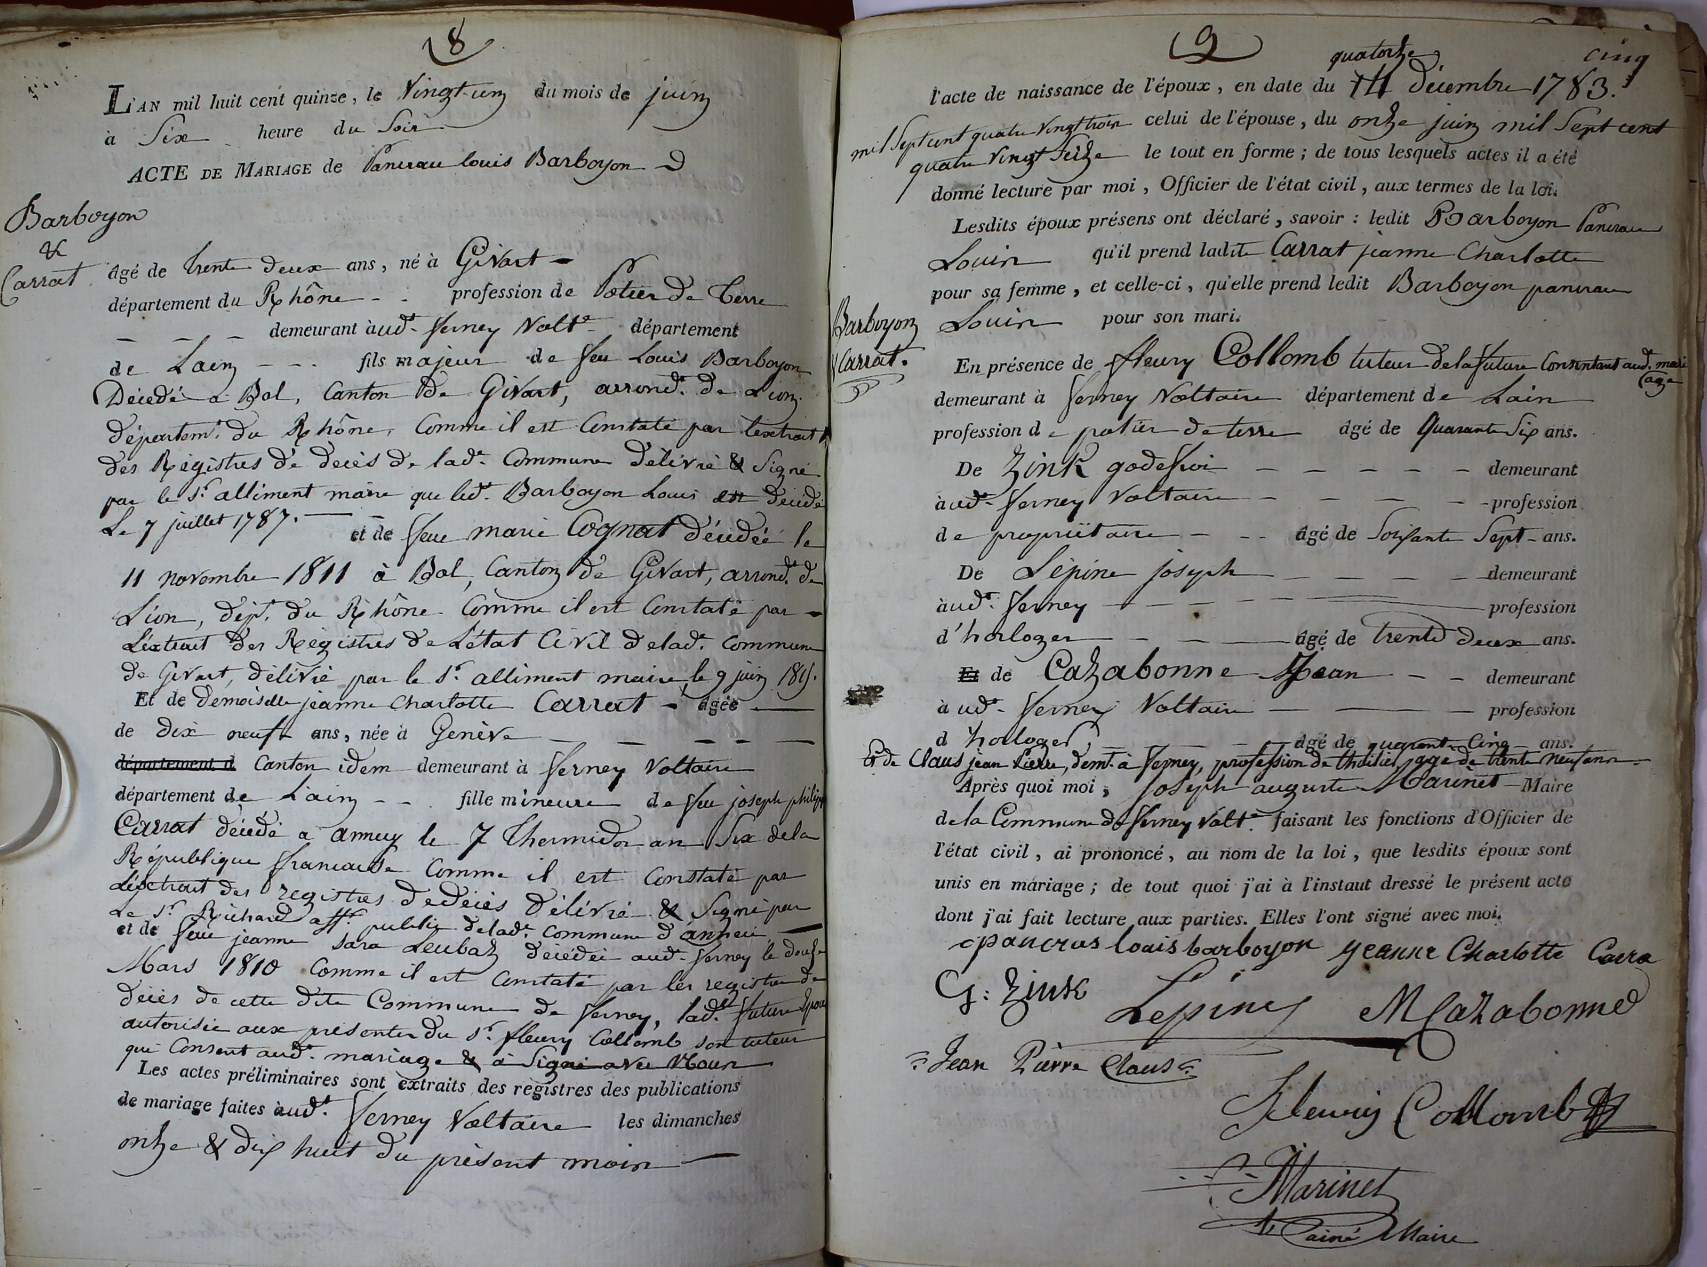 8
L'AN mil huit cent quinze, le Vingt-un du mois de juin
à Six heure du Soir.
ACTE DE MARIAGE de Pancrau Louis Barboyon
Barboyon
&
Carrat
âgé de trente deux ans, né à Givort
département du Rhône - - profession de Potier De Terre
demeurant à udt. ferney Volte. département
de Lain - - . fils majeur de feu Louis Barboyon
Décédé a Bol, Canton De Givort, arrondt. De Lion.
départemt. du Rhône, Comme il est Constaté par l'extrait
des Régistres de decès de ladt. Commune délivré & Signé
par le Sr. alliment maire que ledt. Barboyon Louis est décédé
Le 7 juillet 1787. et de feue marie Cognat décédée le
11 novembre 1811 à Bol, Canton de Givort, arrondt. de
Lion, dépt. du Rhône Comme il est Constaté par
L'extrait des Régistres de L'état Civil de lad. Commune
de Givort, délivré par le Sr. alliment maire, le 9 juin 1815.
Et de demoiselle jeanne Charlotte Carrat - âgée
de dix neuf ans, née à Genève
département d Canton idem demeurant à ferney Voltaire
département de Lain - - . fille mineure de feu joseph philip
Carrat décédé a annecy le 7 Thermidor an Six de la
République francaise Comme il est Constaté par
L'extrait des registres de decès délivré & Signé par
Le Sr. Richard offr. public de ladt. Commune d'anneci
et de feue jeanne Sara Leubaz décédée audt. ferney le douze
Mars 1810 Comme il est Constaté par les registres de
décès de cette dite Commune de ferney, ladt. future Epouse
autorisée aux présentes du Sr. fleury Collomb son tuteur
qui Consent audt. mariage & à Signé avec Nous
Les actes préliminaires sont extraits des registres des publications
de mariage faites à udt. ferney Voltaire les dimanches
onze & dix huit du présent mois
9
cinq
quatorze
l'acte de naissance de l'époux, en date du 14 décembre 1783.
mil Sept cent quatre Vingt trois celui de l'épouse, du onze juin mil Sept cent
quatre Vingt Seize le tout en forme; de tous lesquels actes il a été
donné lecture par moi, Officier de l'état civil, aux termes de la loi.
Lesdits époux présens ont déclaré, savoir : ledit Barboyon Pancrau
Louis qu'il prend ladite Carrat jeanne Charlotte
pour sa femme, et celle-ci, qu'elle prend ledit Barboyon pancrau
Barboyon
& Carrat.
Louis pour son mari.
En présence de fleury Collomb tuteur de la future Consentant aud. mari
age
demeurant à ferney Voltaire département de Lain
profession de potier de terre âgé de Quarante Six ans.
De Zink godefroi - - - - - demeurant
à udt. ferney Voltaire - - - - - profession
de propriétaire - - - âgé de Soixante Sept - ans.
De Lépine joseph - - - - - demeurant
à udt. ferney - - - profession
d'horloger - - - âgé de trente deux ans.
Et de Cazabonne Jean - - demeurant
à udt. ferney Voltaire - - profession
d'horloger - - - âgé de quarente Cinq ans.
Et de Claus jean Pierre, demt. à ferney, profession de thuilier, age de trente neuf ans
Après quoi moi, Joseph auguste Marinet - Maire
de la Commune de ferney Volte. faisant les fonctions d'Officier de
l'état civil, ai prononcé, au nom de la loi, que lesdits époux sont
unis en mariage; de tout quoi j'ai à l'instaut dressé le présent acte
dont j'ai fait lecture aux parties. Elles l'ont signé avec moi.
pancras louis barboyon jeanne Charlotte Carra
G: Zink
Lepine M Cazabonne
Jean Pierre Claus
fleury Collomb
Marinet
ainé Maire